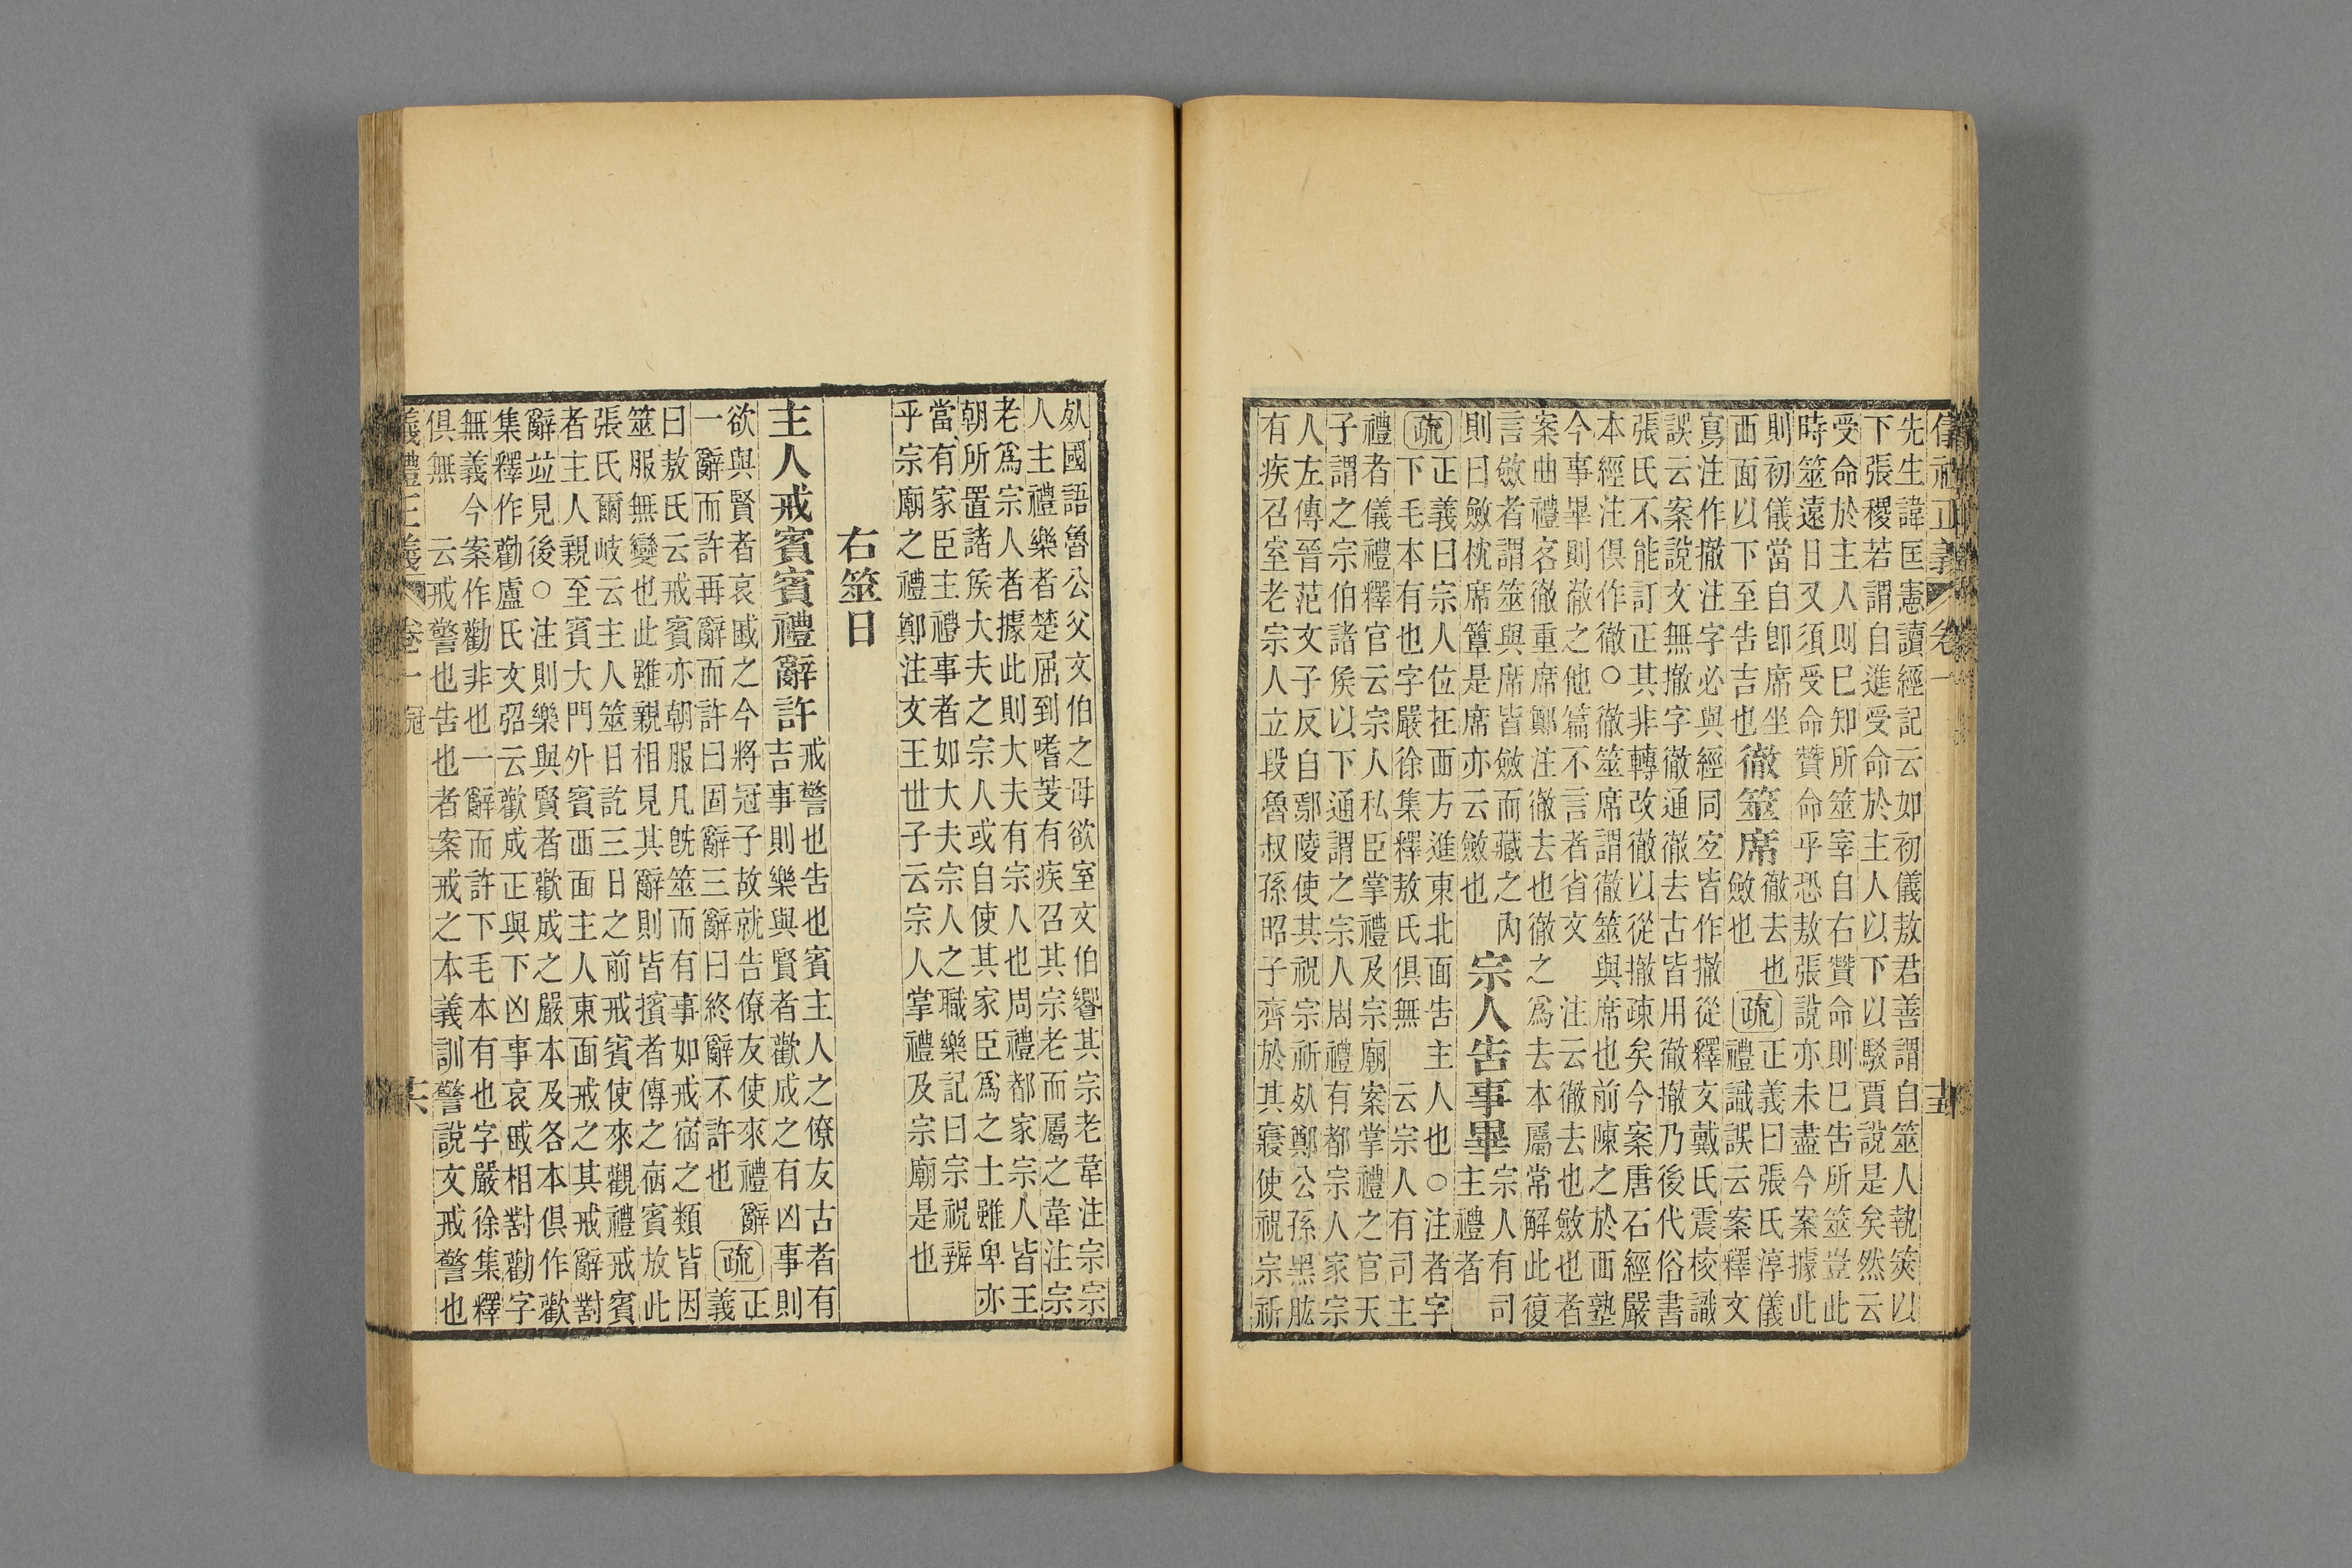 儀禮正義 卷一 十五
先生諱匡憲讀經記云如初儀敖君善謂自筮人執筴以
下張稷若謂自進受命於主人以下以駁賈說是矣然云
受命於主人則已知所筮宰自右贊命則已告所筮豈此
時筮遠日又須受命贊命乎恐敖張說亦未盡今案據此
則初儀當自卽席坐
西面以下至告吉也
徹筮席
徹去也
斂也
疏
正義曰張氏淳儀
禮識誤云案釋文
寫注作撤注字必與經同㝎皆作撤從釋文戴氏震校識
誤云案說文無撤字徹通徹去古皆用徹撤乃後代俗書
張氏不能訂正其非轉改徹以從撤疎矣今案唐石經嚴
本經注俱作徹○徹筮席謂徹筮與席也前陳之於西塾
今事畢則徹之他篇不言者省文 注云徹去也斂也者
案曲禮客徹重席鄭注徹去也徹之爲去本屬常解此復
言斂者謂筮與席皆斂而藏之內
則曰斂枕席簟是席亦云斂也
宗人告事畢
宗人有司
主禮者
疏
正義曰宗人位在西方進東北面告主人也○注者字
下毛本有也字嚴徐集釋敖氏俱無 云宗人有司主
禮者儀禮釋官云宗人私臣掌禮及宗廟案掌禮之官天
子謂之宗伯諸侯以下通謂之宗人周禮有都宗人家宗
人左傳晉范文子反自鄢陵使其祝宗祈死鄭公孫黑肱
有疾召室老宗人立段魯叔孫昭子齊於其寢使祝宗祈
死國語魯公父文伯之母欲室文伯饗其宗老韋注宗宗
人主禮樂者楚屈到嗜芰有疾召其宗老而屬之韋注宗
老爲宗人者據此則大夫有宗人也周禮都家宗人皆王
朝所置諸侯大夫之宗人或自使其家臣爲之士雖卑亦
當有家臣主禮事者如大夫宗人之職樂記曰宗祝辨
乎宗廟之禮鄭注文王世子云宗人掌禮及宗廟是也
右筮日
主人戒賓賓禮辭許
戒警也告也賓主人之僚友古者有
吉事則樂與賢者歡成之有凶事則
欲與賢者哀戚之今將冠子故就告僚友使來禮辭
一辭而許再辭而許曰固辭三辭曰終辭不許也
疏
正
義
曰敖氏云戒賓亦朝服凡旣筮而有事如戒宿之類皆因
筮服無變也此雖親相見其辭則皆擯者傳之宿賓放此
張氏爾岐云主人筮日訖三日之前戒賓使來觀禮戒賓
者主人親至賓大門外賓西面主人東面戒之其戒辭對
辭竝見後○注則樂與賢者歡成之嚴本及各本俱作歡
集釋作勸盧氏文弨云歡成正與下凶事哀戚相對勸字
無義今案作勸非也一辭而許下毛本有也字嚴徐集釋
俱無 云戒警也告也者案戒之本義訓警說文戒警也
義禮正義 卷一 冠 十六